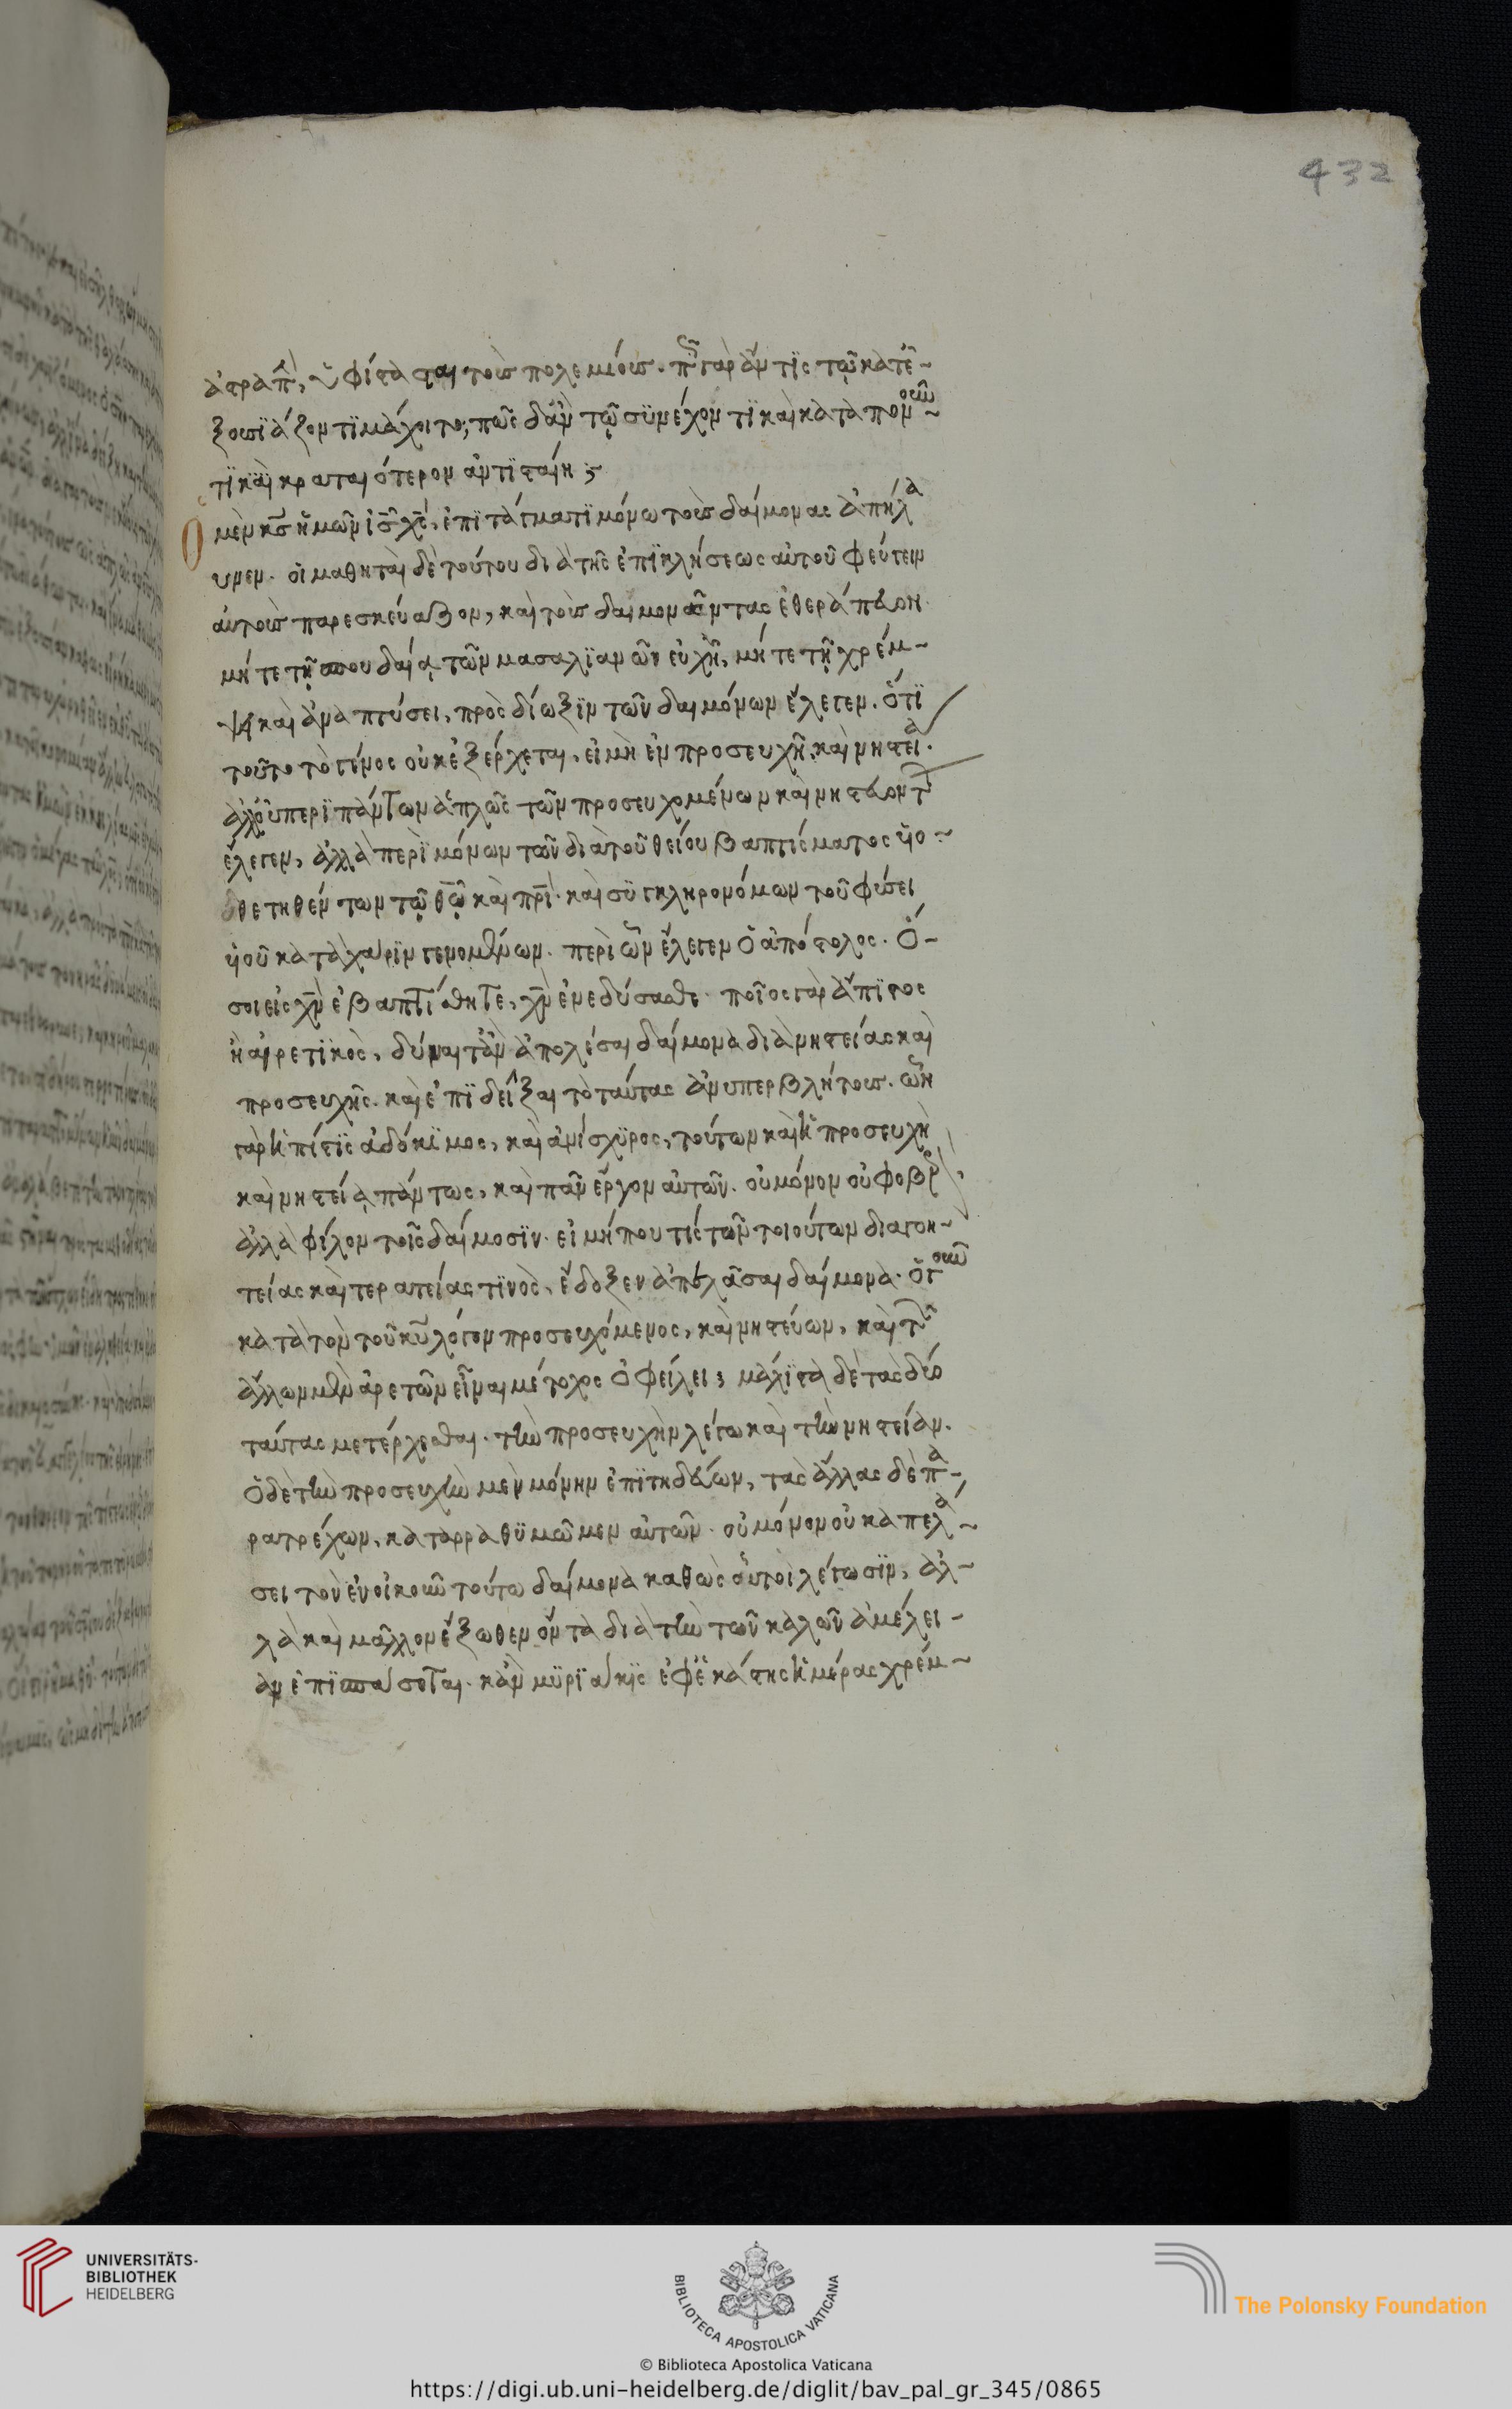 432
ἀστραπὴ, ὑφίσταται τοὺς πολεμίους. πῶς γὰρ ἄν τις τῶ κατε-
ξουσιάζοντι μάχοιτο; πῶς δἂν τῶ συνέχοντι καὶ καταπονοῦν-
τι καὶ κραταιότερον ἀντισταίη;
Ὁ μὲν κς ἡμῶν ις χς, ἐπιτάγματι μόνω τοὺς δαίμονας ἀπήλα
υνεν. οἱ μαθηταὶ δὲ τούτου διὰ τῆς ἐπικλήσεως αὐτοῦ φεύγειν
αὐτοὺς παρεσκεύαζον, καὶ τοὺς δαιμονῶντας ἐθεράπευον.
μήτε τῆ σπουδαία τῶν μασαλιανῶν εὐχῆ, μήτε τῆ χρέμ-
ψει καὶ ἀναπτύσει, πρὸς δίωξιν τῶν δαιμόνων ἔλεγεν. ὅτι
τοῦτο τὸ γένος οὐκ ἐξέρχεται, εἰ μὴ ἐν προσευχῆ καὶ νηστεία.
ἀλλ' οὐ περὶ πάντων ἁπλῶς τῶν προσευχομένων καὶ νηστευόντων
ἔλεγεν, ἀλλὰ περὶ μόνων τῶν διὰ τοῦ θείου βαπτίσματος υἱο-
θετηθέντων τῶ θῶ καὶ πρι. καὶ συγκληρονόμων τοῦ φύσει
υἱοῦ κατὰ χάριν γενομένων. περὶ ὧν ἔλεγεν ὁ ἀπόστολος. Ὅ-
σοι εἰς χν ἐβαπτίσθητε, χν ἐνεδύσασθε. ποῖος γὰρ ἄπιστος
ἢ αἱρετικὸς, δύναιτ' ἂν ἀπολέσαι δαίμονα διὰ νηστείας καὶ
προσευχῆς. καὶ ἐπιδεῖξαι τὸ ταύτας ἀνυπερβλήτους. ὧν
γὰρ ἡ πίστις ἀδόκιμος, καὶ ἀνίσχυρος, τούτων καὶ ἡ προσευχὴ
καὶ νηστεία πάντως, καὶ πᾶν ἔργον αὐτῶν. οὐ μόνον οὐ φοβερὸν
ἀλλὰ φίλον τοῖς δαίμοσιν. εἰ μήπου τίς τῶν τοιούτων διὰ γοη-
τείας καὶ τερατείας τινὸς, ἔδοξεν ἀπελᾶσαι δαίμονα. ὅγουν
κατὰ τὸν τοῦ κυ λόγον προσευχόμενος, καὶ νηστεύων, καὶ τῶν
ἄλλων μὲν ἀρετῶν εἶναι μέτοχος ὀφείλει; μάλιστα δὲ τὰς δύο
ταύτας μετέρχεσθαι. τὴν προσευχὴν λέγω καὶ τὴν νηστείαν.
Ὁ δὲ τὴν προσευχὴν μὲν μόνην ἐπιτηδεύων, τὰς ἄλλας δὲ πα-
ρατρέχων, καταρραθυμῶν μὲν αὐτῶν. οὐ μόνον οὐκ ἀπελά-
σει τὸν ἐνοικοῦν τούτω δαίμονα καθὼς αὐτοὶ λέγωσιν, ἀλ-
λὰ καὶ μᾶλλον ἔξωθεν ὄντα διὰ τὴν τῶν καλῶν ἀμέλει-
αν ἐπισπάσεται. κἂν μυριάκις ἐφ' ἑκάστης ἡμέρας χρέμ-
UNIVERSITÄTS-
BIBLIOTHEK
HEIDELBERG
BIBLIOTECA APOSTOLICA VATICANA
The Polonsky Foundation
© Biblioteca Apostolica Vaticana
https://digi.ub.uni-heidelberg.de/diglit/bav_pal_gr_345/0865